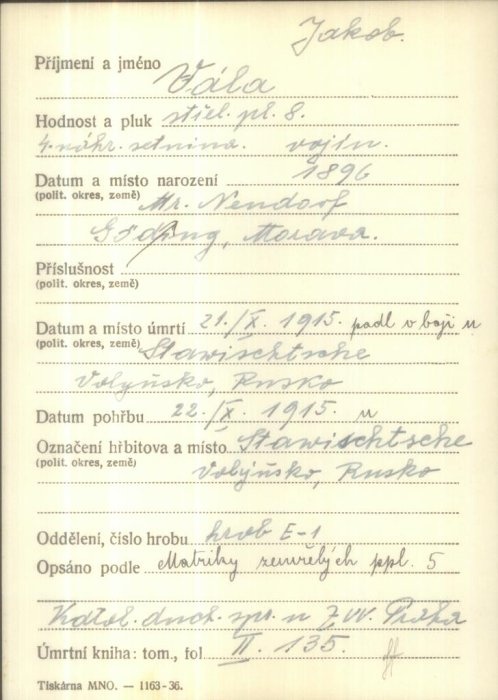 Jakob.
Příjmení a jméno Vála
Hodnost a pluk střel. pl. 8.
4. náhr. setnina. vojín.
Datum a místo narození 1896
(polit. okres, země) Mr. Nendorf
Göding, Morava.
Příslušnost
(polit. okres, země)
Datum a místo úmrtí 21./X. 1915. padl v boji u
(polit. okres, země) Stawischtsche
Volyňsko, Rusko
Datum pohřbu 22./X. 1915. u
Označení hřbitova a místo Stawischtsche
(polit. okres, země) Volyňsko, Rusko
Oddělení, číslo hrobu hrob E-1
Opsáno podle Matriky zemřelých ppl. 5
Katol. duch. spr. u ZVV. Praha
Úmrtní kniha: tom., fol. II. 135.
Tiskárna MNO. — 1163-36.